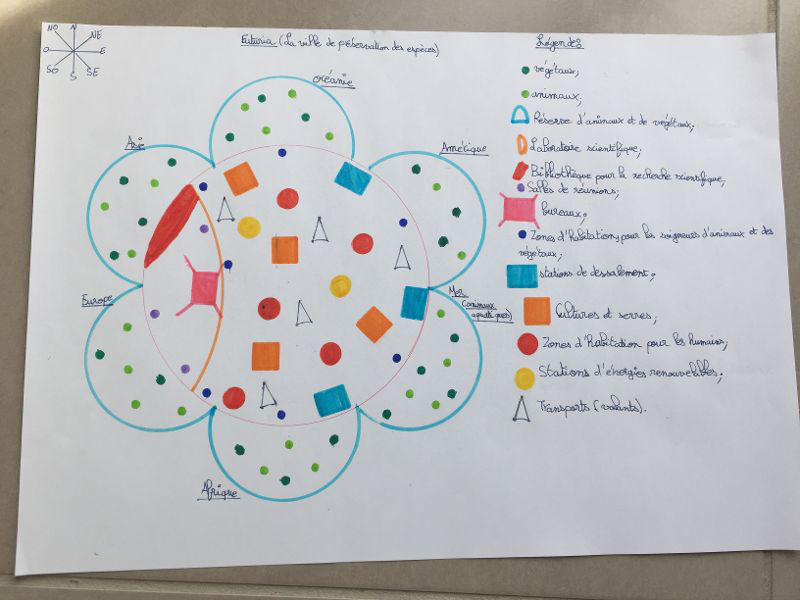 NO N NE
O E
SO S SE
Futuria (La ville de préservation des espèces)
Océanie
Asie
Amérique
Europe
Mer
(animaux
aquatiques)
Afrique
Légende:
végétaux;
animaux;
Réserve d'animaux et de végétaux;
Laboratoire scientifique;
Bibliothèque pour la recherche scientifique;
Salles de réunions;
bureaux;
Zones d'habitations pour les soigneurs d'animaux et des
végétaux;
stations de dessalement;
Cultures et serres;
Zones d'habitation pour les humains;
Stations d'énergies renouvelables;
Transports (volants).